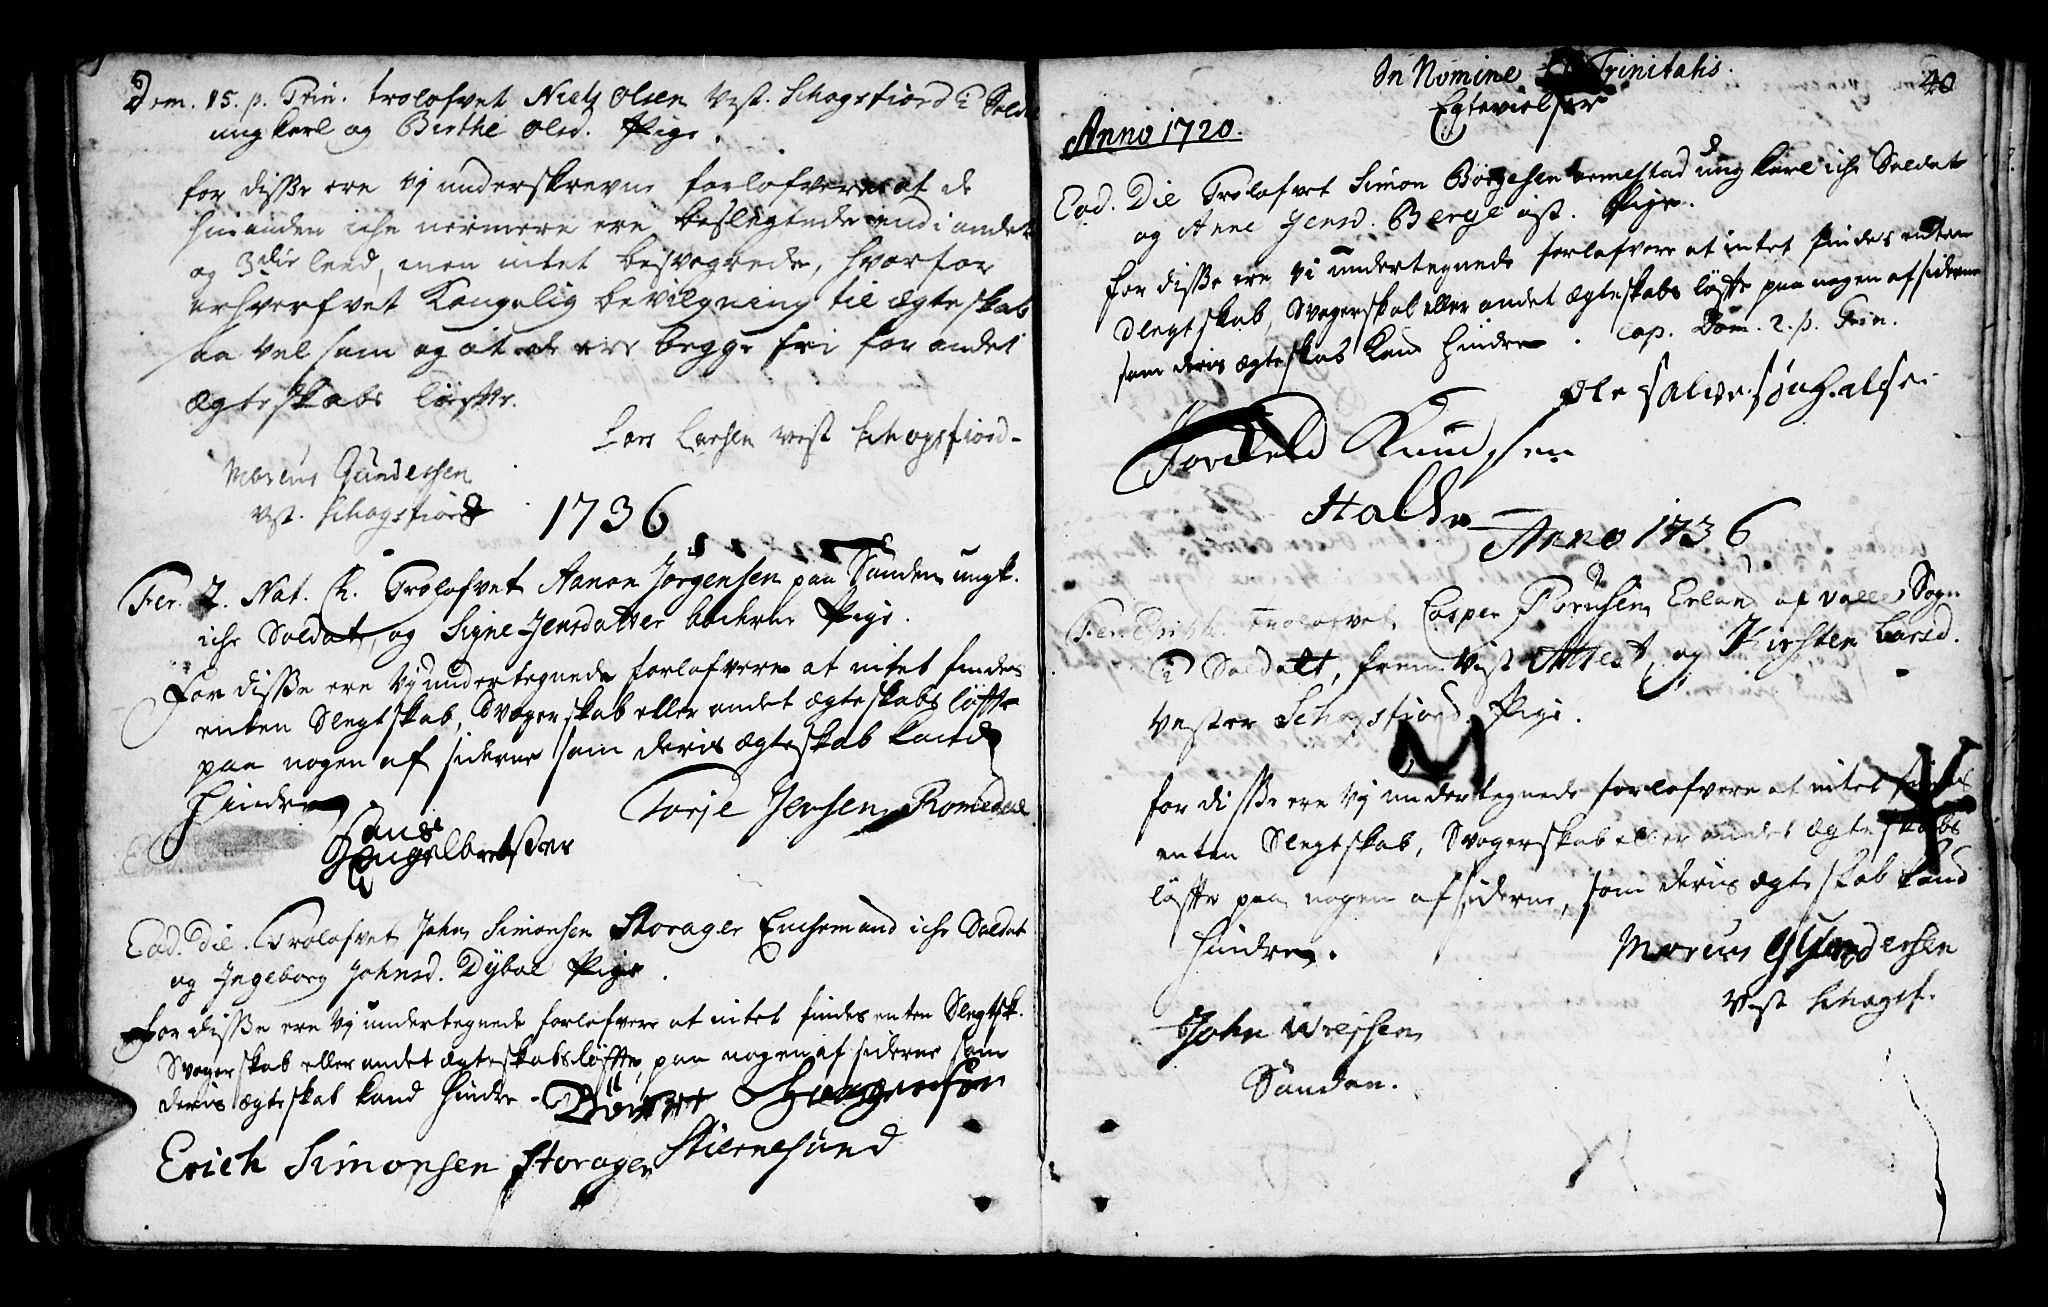 Dom. 15. p. Trin. trolofvet Niels Olsen Vest. Schogsfiord
ungkarl og Birthe Olsd. Pige.
for disse ere vj underskrevne forlofvere at de
hinanden iche nermere ere beslegtede end i andet
og 3die leed, men intet besvogrede, hvorfor
erhverfvet Kongelig bevilgning til ægteskab
saa vel som og at de ere begge fri for andet
Ægteskabs løffte.
Lars Larsen vest Schogsfiord
Marcus Gundersen
vest. Schogsfiord
1736
Fer. 2. Nat. Ch. Trolofvet Aanon Jörgensen paa Sanden ungk.
iche Soldat, og Signe Jensdatter Pige.
For disse ere vj undertegnede forlofvere at intet findes
enten Slegtskab, Svogerskab eller andet ægteskabs løffte
paa nogen af siderne som deris ægteskab kand
hindre.
Torje Jensen Romedal
Hans
Engelbretsen
Eod. Die. Trolofvet John Simonsen Storager Enchemand iche Soldat
og Ingeborg Johnsd. Dybøl Pige.
For disse ere vj undertegnede forlofvere at intet findes enten Slegtsk.
Svogerskab eller andet Ægteskabs løffte, paa nogen af siderne som
deris ægteskab kand hindre.
Erich Simonsen Storager Stiernesund
In Nomine Trinitatis. 40
Egtevielser
Anno 1720.
Eod. Die Trolofvet Simon Börgesen ung karl iche Soldat
og Anne Jensd. Berge øst. Pige.
for disse ere vi undertegnede forlofvere at intet findes enten
Slegtskab, Svogerskab eller andet Ægteskabs løffte paa nogen af siderne
som deris ægteskab kand hindre. Cop. Dom. 2. p. Trin.
Ole Salvesøn Halse
Tordeld Knudsen
Halse
Anno 1736
Trolofvet Casper Erland af Valle Sogn
Soldatt, frem vist Attest, og Kirsten Larsd.
Vester Schogsfiord Pige.
for disse ere vj undertegnede forlofvere at intet findes
enten Slegtskab, Svogerskab eller andet ægteskabs
løffte paa nogen af siderne, som deris ægteskab kand
hindre.
Marcus Gundersen
Vest Schogsf.
John
Sanden.